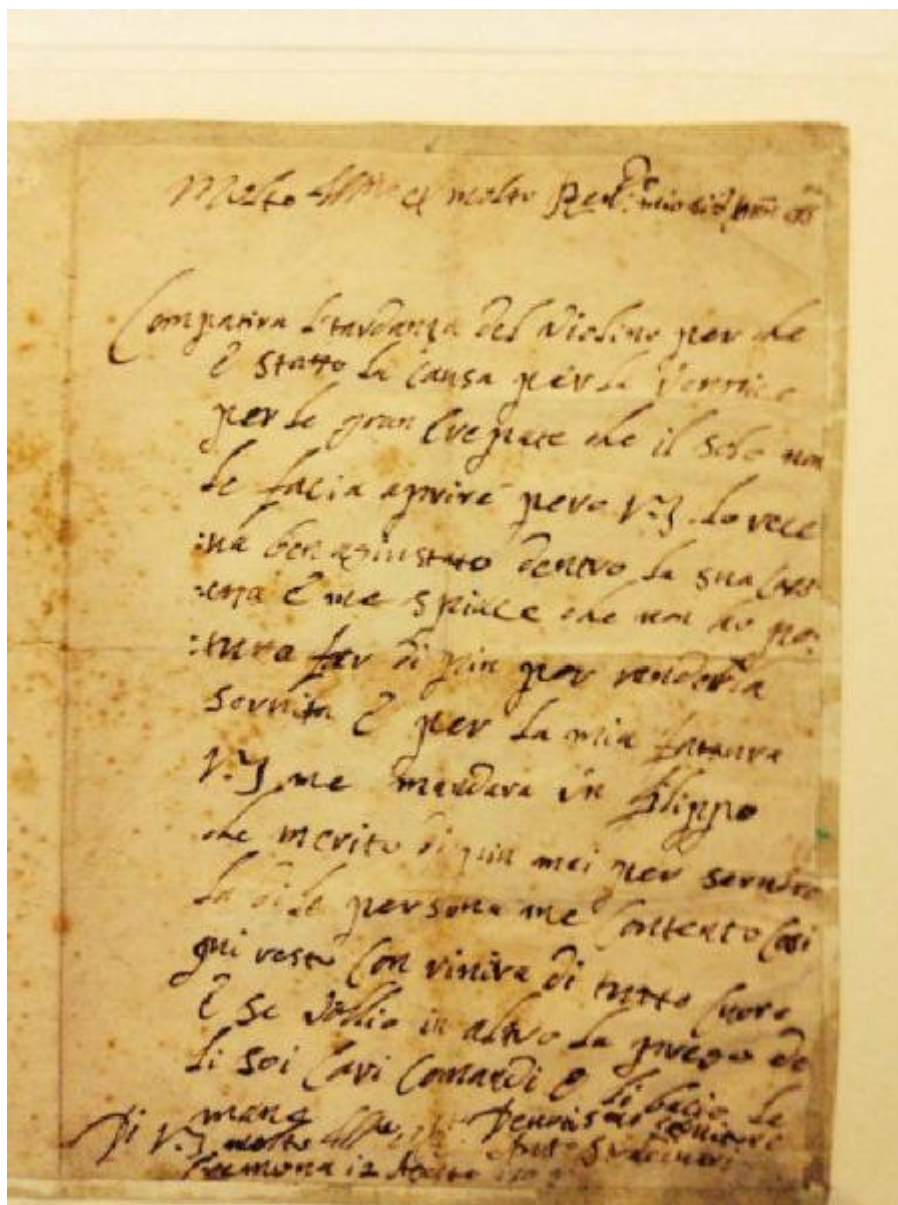 Molto Illre et molto Rend
Compatira la tardanza del Violino per che
è statto la causa per la Vernice
per le gran Crepate che il sole non
le facia aprire pero V.S. lo rece
:na ben agiustato dentro la sua Cas
e me spiace che non ho po:
:tuto far di piu per renderla
servita e per la mia fatura
V.S. me mandara un Filippo
che merito di piu mai per servire
la di le persona me Contento Cosi
qui resto Con rivirla di tutto Cuore
e se vallio in altro la prego de
li soi Cari Comandi e li bacio le
mane
Di V.S. molto Illre Devotisimo Servitore
Cremona 12 Agosto Anto Stradivari